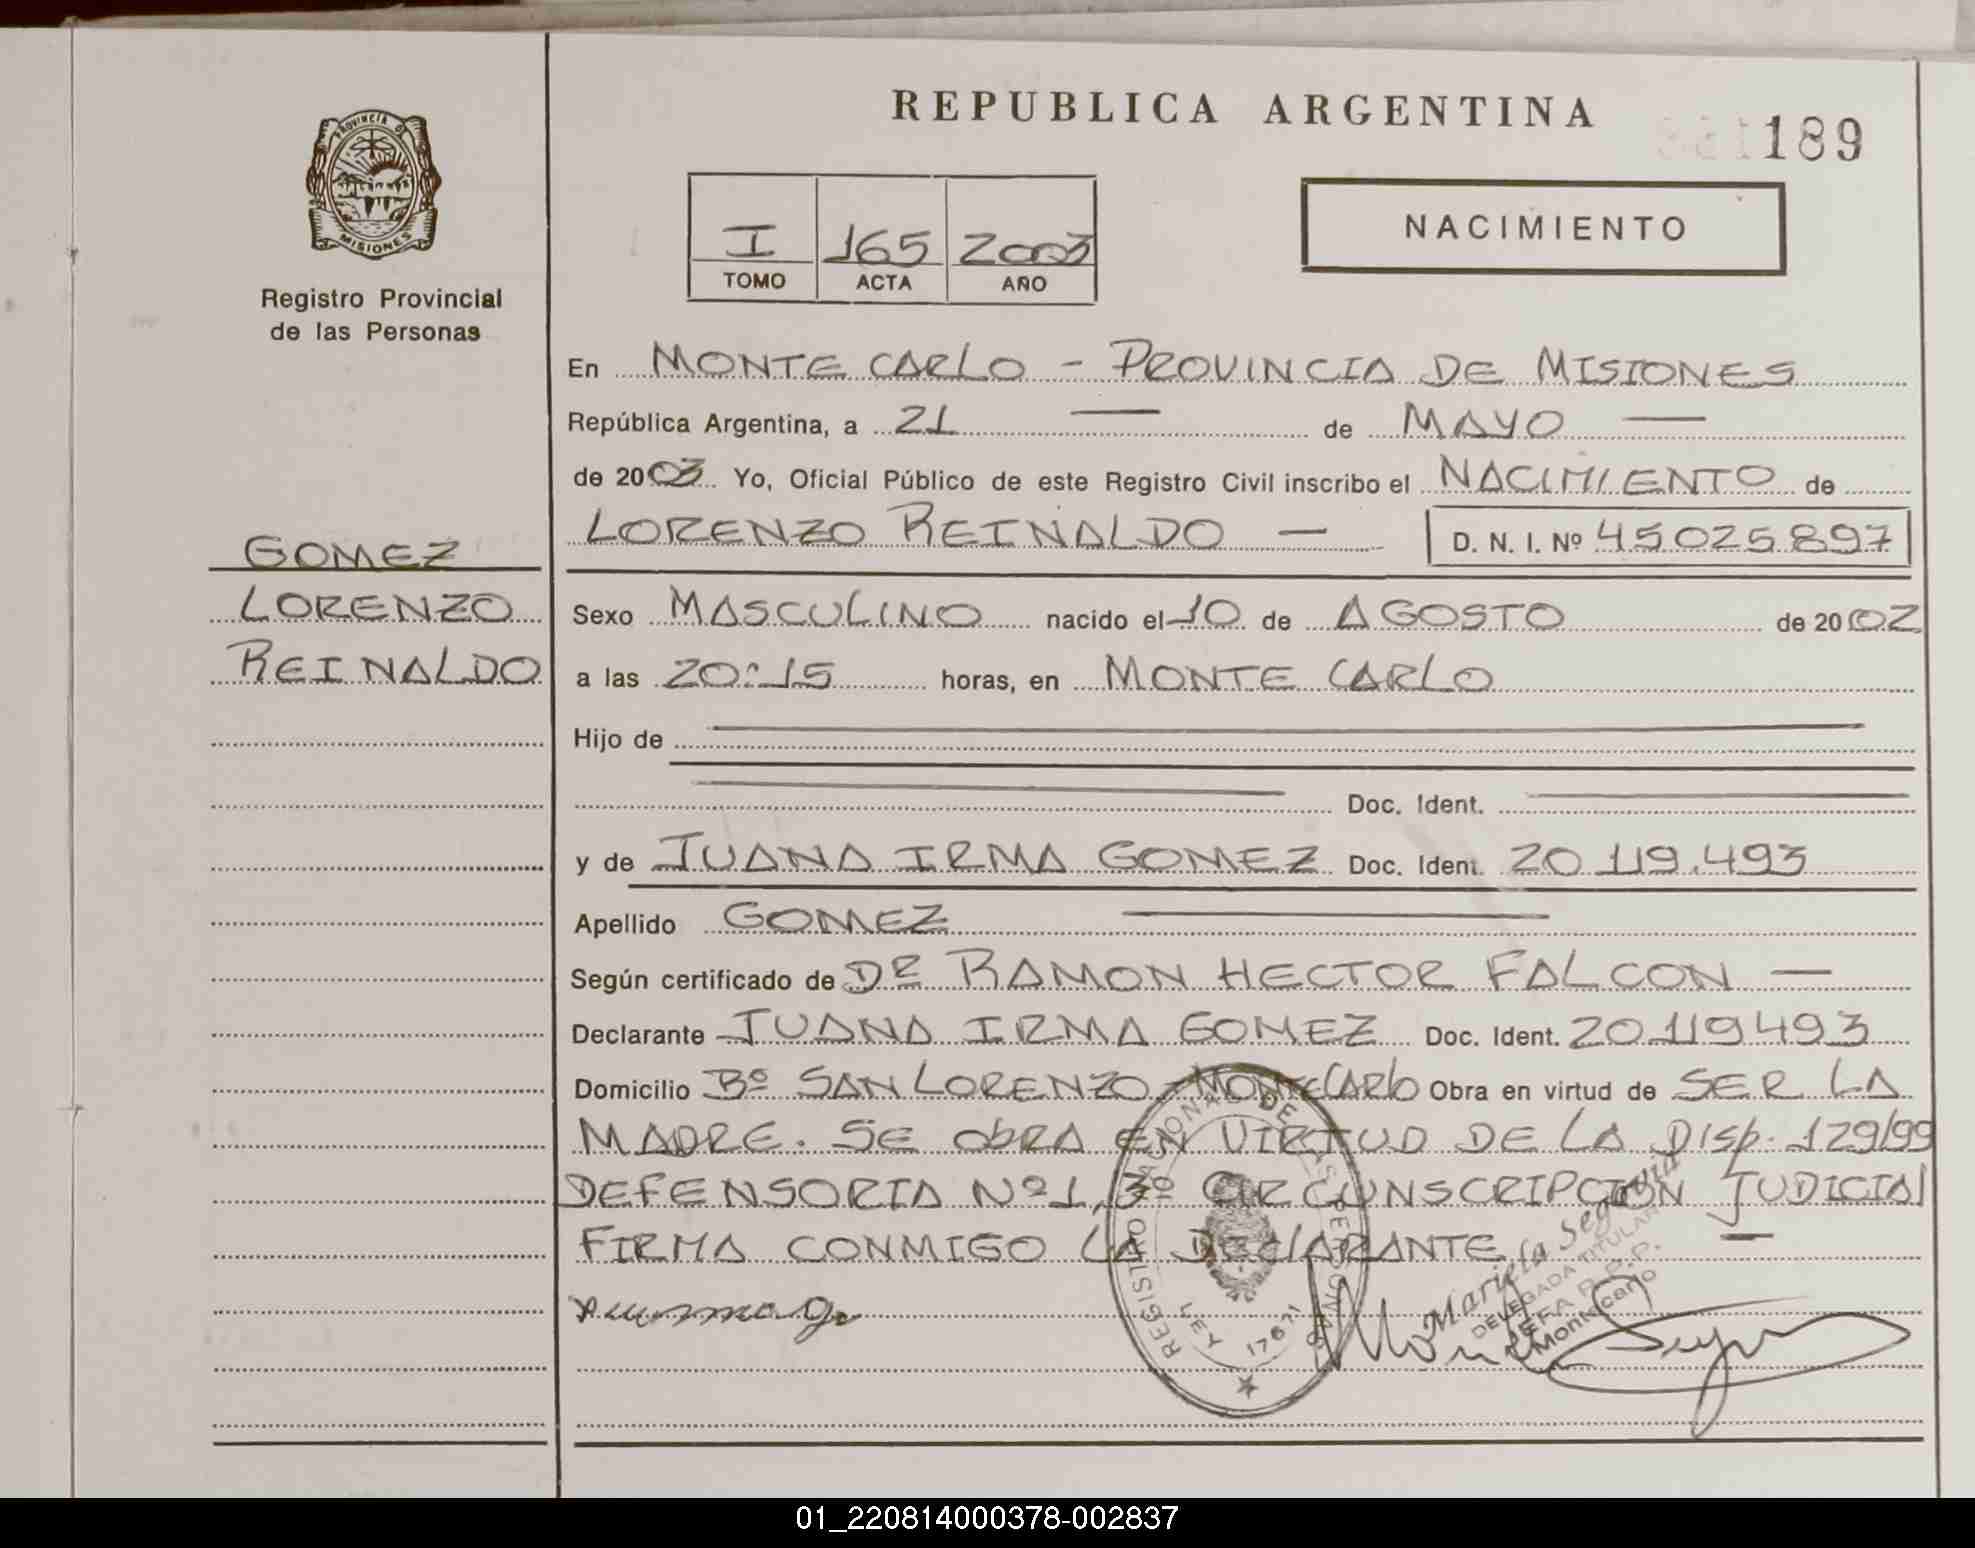 REPUBLICA ARGENTINA
189
PROVINCIA DE
MISIONES
Registro Provincial
de las Personas
I 165 2003
TOMO ACTA AÑO
NACIMIENTO
En MONTE CARLO - PROVINCIA DE MISIONES
República Argentina, a 21 — de MAYO —
de 2003 Yo, Oficial Público de este Registro Civil inscribo el NACIMIENTO de
LORENZO REINALDO — D. N. I. Nº 45025897
GOMEZ
LORENZO
REINALDO
Sexo MASCULINO nacido el 10 de AGOSTO de 2002
a las 20:15 horas, en MONTE CARLO
Hijo de
Doc. Ident.
y de JUANA IRMA GOMEZ Doc. Ident. 20.119.493
Apellido GOMEZ
Según certificado de DR RAMON HECTOR FALCON —
Declarante JUANA IRMA GOMEZ Doc. Ident. 20119493
Domicilio Bº SAN LORENZO - MONTECARLO Obra en virtud de SER LA
MADRE. SE ObRA EN VIRTUD DE LA DISp. 129/99
DEFENSORIA Nº1, 3º CIRCUNSCRIPCION JUDICIAL
FIRMA CONMIGO LA DEClARANTE —
REGISTRO NACIONAL DE LAS PERSONAS
LEY 17671
Mariela Segovia
DELEGADA TITULAR
R.P.P.
Montecarlo
01_220814000378-002837